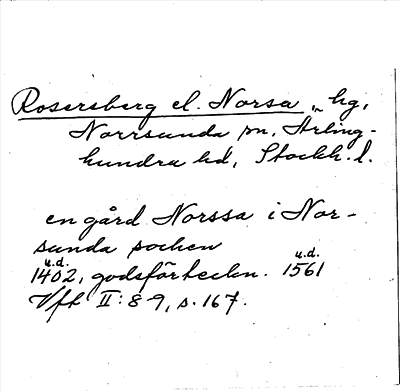 Rosersberg el. Norsa „ hg,
Norrsunda sn, Ärling-
hundra hd, Stockh. l.
en gård Norssa i Nor-
sunda sochen
u.d. u.d.
1402, godsförteckn. 1561
Vft II: 8-9, s. 167.